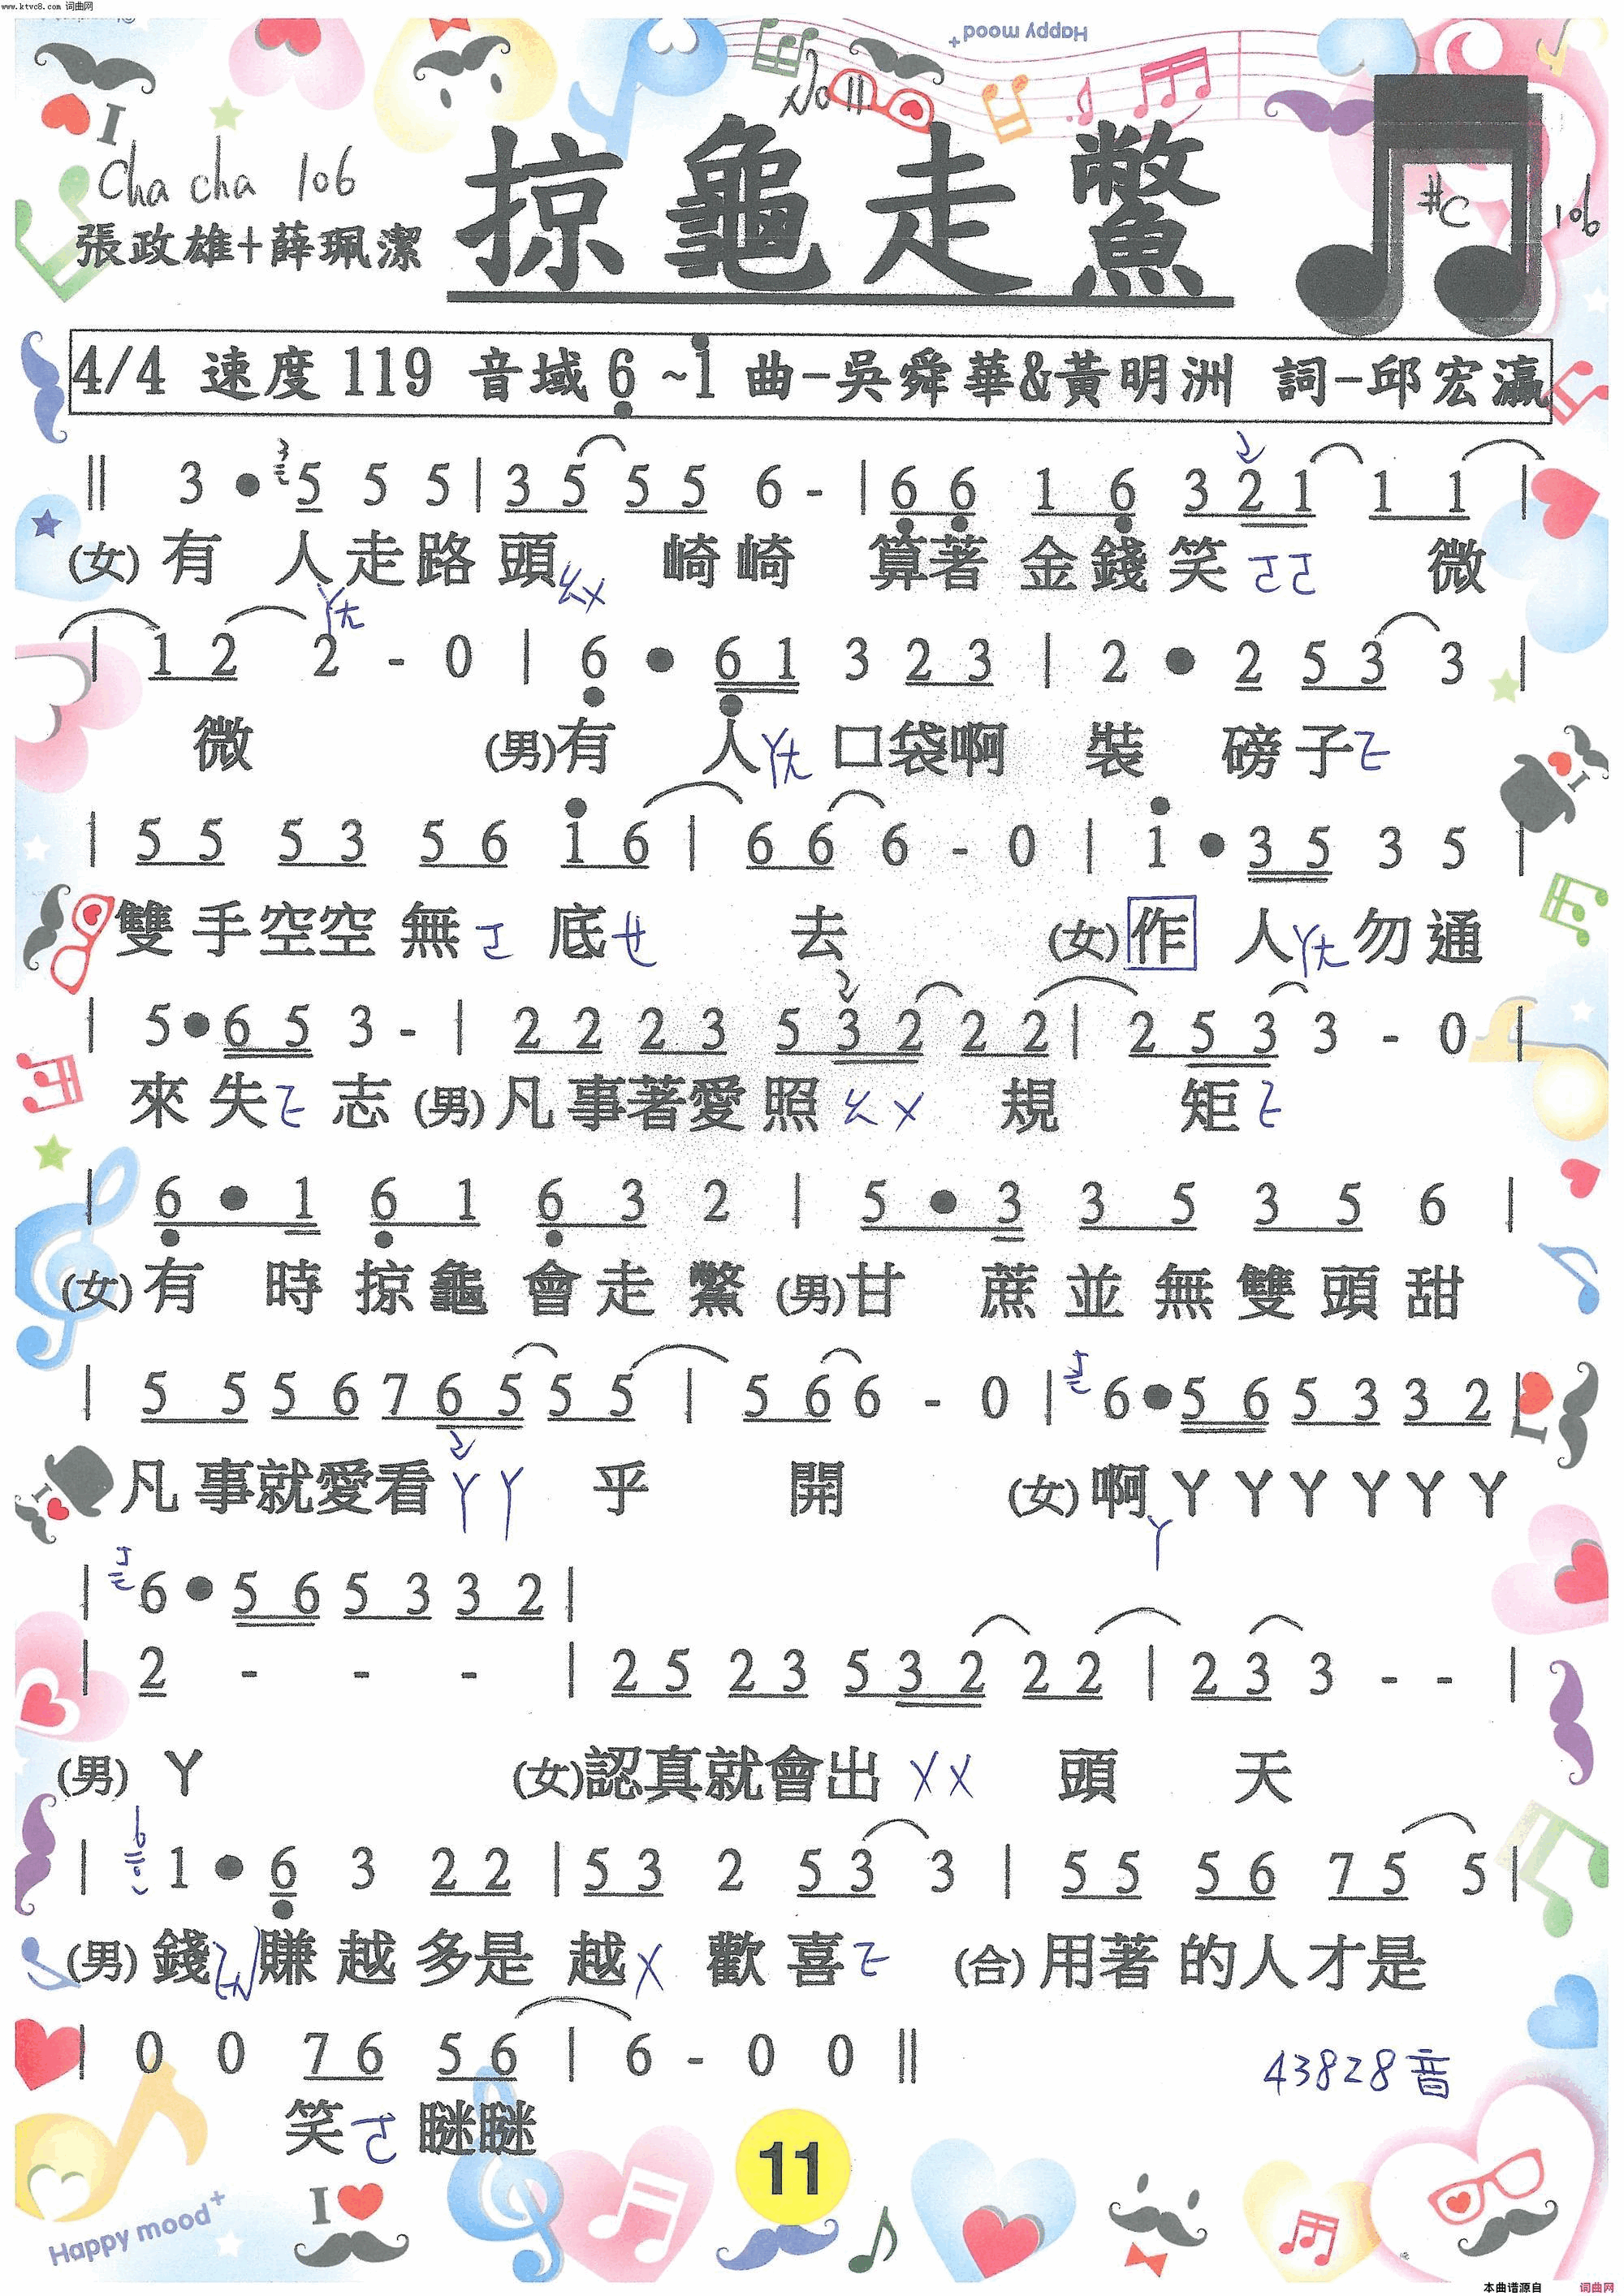 www.ktvc8.com 词曲网
Happy mood+
No 11
I
Cha cha 106
掠龜走鱉
#C 106
張政雄+薛珮潔
4/4 速度 119 音域 6 ~ 1 曲-吳舜華&黃明洲 詞-邱宏瀛
‖ 3 • 5 5 5 | 3 5 5 5 6 - | 6 6 1 6 3 2 1 1 1 |
(女) 有 人走路頭ㄠㄨ 崎崎 算著 金錢笑ㄜㄜ 微
ㄚㄤ
| 1 2 2 - 0 | 6 • 6 1 3 2 3 | 2 • 2 5 3 3 |
微 (男)有 人ㄚㄤ 口袋啊 裝 磅子ㄜ
I
| 5 5 5 3 5 6 1 6 | 6 6 6 - 0 | 1 • 3 5 3 5 |
雙手空空無ㄜ 底ㄝ 去 (女)作 人ㄚㄤ勿通
| 5 • 6 5 3 - | 2 2 2 3 5 3 2 2 2 | 2 5 3 3 - 0 |
來失ㄜ志(男)凡事著愛照ㄠㄨ 規 矩ㄜ
| 6 • 1 6 1 6 3 2 | 5 • 3 3 5 3 5 6 |
(女)有 時掠龜會走鱉(男)甘 蔗並無雙頭甜
| 5 5 5 6 7 6 5 5 5 | 5 6 6 - 0 | 6 • 5 6 5 3 3 2 |
I
凡事就愛看ㄚㄚ 乎 開 (女)啊ㄚㄚㄚㄚㄚㄚ
I
ㄚ
| 6 • 5 6 5 3 3 2 |
| 2 - - - | 2 5 2 3 5 3 2 2 2 | 2 3 3 - - |
(男) ㄚ (女)認真就會出ㄨㄨ 頭 天
| 1 • 6 3 2 2 | 5 3 2 5 3 3 | 5 5 5 6 7 5 5 |
(男)錢 賺越多是越ㄨ歡喜ㄜ (合)用著的人才是
| 0 0 7 6 5 6 | 6 - 0 0 ‖
43828音
笑ㄜ瞇瞇
11
I
Happy mood+
本曲谱源自 词曲网